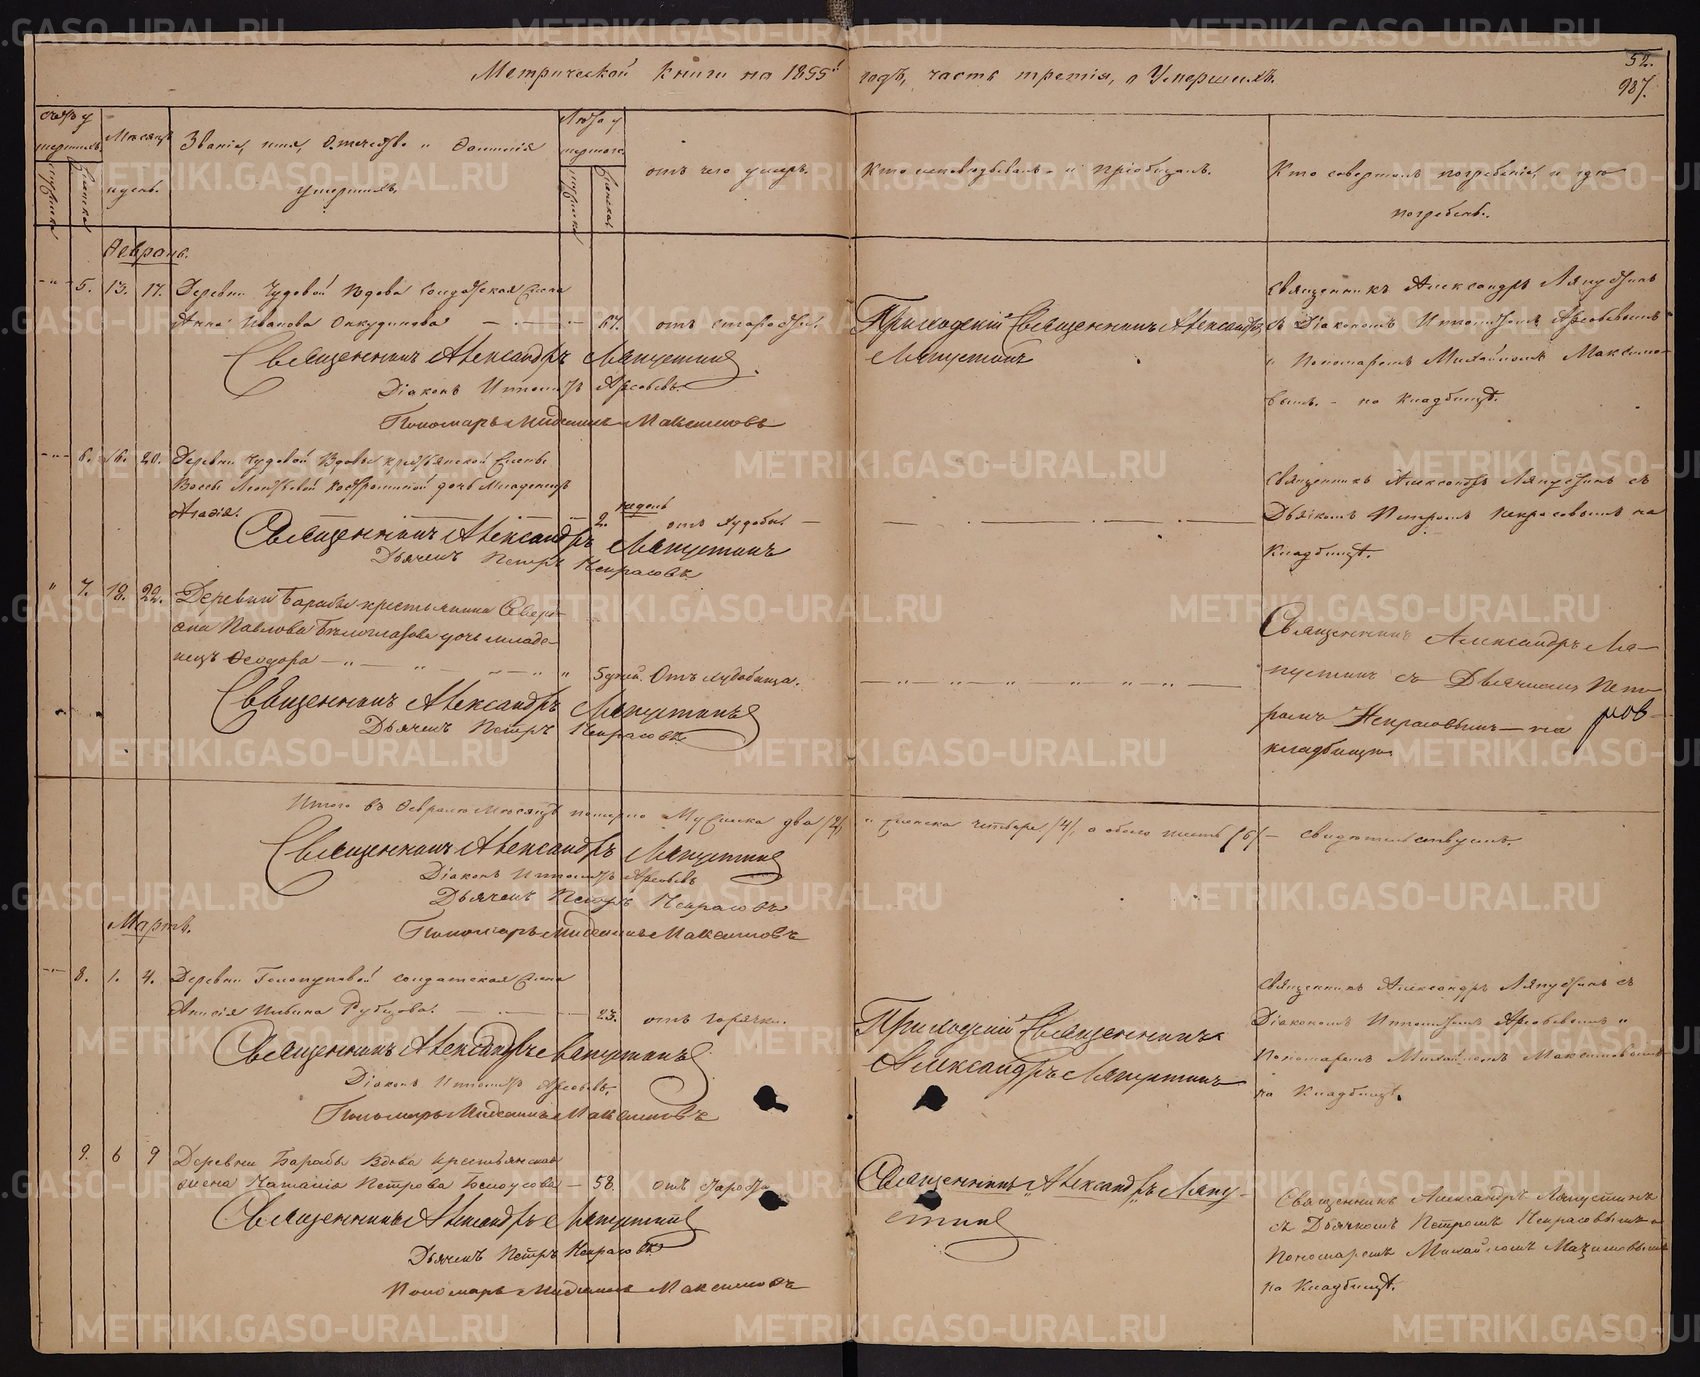 52.
987.
Метрической книги на 1855й годъ, часть третія, о Умершихъ.
Счетъ умершихъ
Мѣсяцъ и день.
Званіе, имя, отчество и фамилія умершихъ.
Лѣта умершаго
отъ чего умеръ.
Кто исповѣдывалъ и пріобщалъ.
Кто совершалъ погребеніе, и гдѣ погребены.
мужеска
женска
мужеска
женска
Февраль.
5. 13. 17. Деревни Чудовой вдова солдатская жена
Анна Иванова Онкудинова 67. отъ старости.
Приходскій Священникъ Александръ
Ляпустинъ
Священникъ Александръ Ляпустинъ
съ Діакономъ Арсевьевымъ
и Пономаремъ Михайломъ Максимо-
вымъ. - на Кладбищѣ.
Священникъ Александръ Ляпустинъ
Діаконъ
Пономарь Максимовъ
6. 16. 20. Деревни Чудовой вдовы крестьянской жены
дочь младенецъ
2. недель отъ худобы.
Священникъ Александръ Ляпустинъ съ
Дьячкомъ Петромъ Некрасовымъ на
Кладбищѣ.
Священникъ Александръ Ляпустинъ
Дьячекъ Петръ Некрасовъ
7. 18. 22. Деревни Барабы крестьянина Севери-
ана Павлова Бѣлоглазова дочь младе-
нецъ Феодора 5 дней. Отъ худобища.
Священникъ Александръ Ля-
пустинъ съ Дьячкомъ Пет-
ромъ Некрасовымъ - на
кладбищѣ
Священникъ Александръ Ляпустинъ
Дьячекъ Петръ Некрасовъ
Итого въ Феврале Мѣсяцѣ померло Мужеска два /2/, и женска четверо /4/, а обоего шесть /6/ - свидѣтельствуемъ.
Священникъ Александръ Ляпустинъ
Діаконъ
Дьячекъ Петръ Некрасовъ
Пономарь Максимовъ
Мартъ.
8. 1. 4. Деревни солдатская жена
Анисія Ильина Рубцова. 23. отъ горячки.
Приходскій Священникъ
Александръ Ляпустинъ
Священникъ Александръ Ляпустинъ съ
Діакономъ
Пономаремъ Михайломъ Максимовымъ
на Кладбищѣ.
Священникъ Александръ Ляпустинъ
Діаконъ
Пономарь Максимовъ
9. 6 9 Деревни Барабы вдова крестьянская
жена Наталія Петрова Белоусова - 58. отъ старости
Священникъ Александръ Ляпу-
стинъ
Священникъ Александръ Ляпустинъ
съ Дьячкомъ Петромъ Некрасовымъ и
Пономаремъ Михайломъ Максимовымъ
на Кладбищѣ.
Священникъ Александръ Ляпустинъ
Дьячекъ Петръ Некрасовъ
Пономарь Максимовъ
METRIKI.GASO-URAL.RU